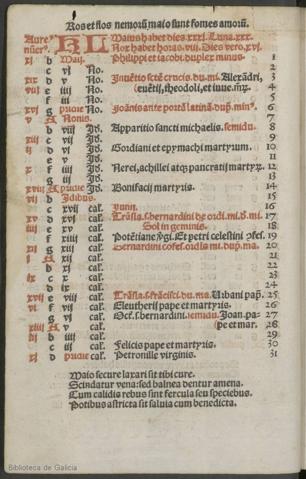 Ros et flos nemorū maio sunt fomes amorū.
Aure- KL Maius habet dies .xxxi. Luna .xxx.
nūer⁹. Nox habet horas .viii. Dies vero .xvi.
xi b Maij. Philippi et iacobi. duplex minus 1
c vj No. 2
xix d v No. Inuētio sctē crucis. du. mi. Alexādri, 3
viii e iiij No. (euētij, theodoli, et iuue. mȓ. 4
f iij No. 5
xvj g pridie No. Joānis ante portā latinā. dup. min⁹. 6
v A Nonis. 7
b viij Jd. Apparitio sancti michaelis. semidu. 8
xiij c vij Jd. 9
ij d vj Jd. Gordiani et epymachi martyrum. 10
e v Jd. 11
x f iiij Jd. Nerei, achillei atq̄ pancratij martyȓ. 12
g iij Jd. 13
xviij A pridie Jd. Bonifacij martyris. 14
vij b Jdibus. 15
c xvij cal̄. Junij. 16
xv d xvj cal̄. Trāsla. s. bernardini de ordi. mi. d. mi. 17
iiij e xv cal̄. Sol in geminis. 18
f xiiij cal̄. Potētiane v̄gī. Et petri celestini ɔfes. 19
xij g xiij cal̄. Bernardini cōfes. ordīs mi. dup. ma. 20
j A xij cal̄. 21
b xj cal̄. 22
ix c x cal̄. 23
d ix cal̄. 24
xvij e viij cal̄. Trāsla. s. frācisci. du. ma. Urbani pap̄. 25
vj f vij cal̄. Eleutherij pape et martyris. 26
g vj cal̄. Oct. s. bernardini. semidu. Joan. pa- 27
xiiij A v cal̄. (pe et mar. 28
iij b iiij cal̄. 29
c iij cal̄. Felicis pape et martyris. 30
xj d pridie cal̄. Petronille virginis. 31
Maio secure laxari sit tibi cure.
Scindatur vena: sed balnea dentur amena.
Cum calidis rebus sint fercula seu speciebus.
Potibus astricta sit saluia cum benedicta.
Biblioteca de Galicia